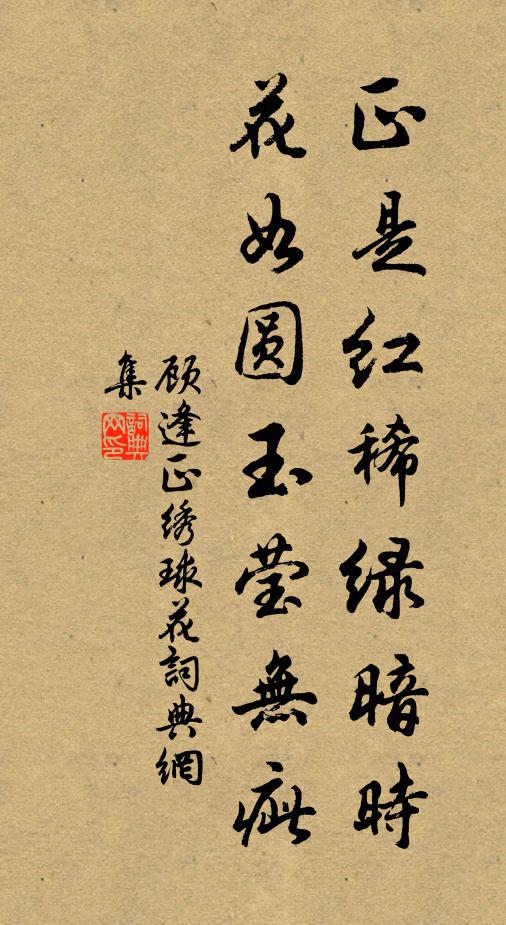 正是红稀绿暗时
花如圆玉莹無疵
顾逢正绣球花詞典網
集
詞典網印